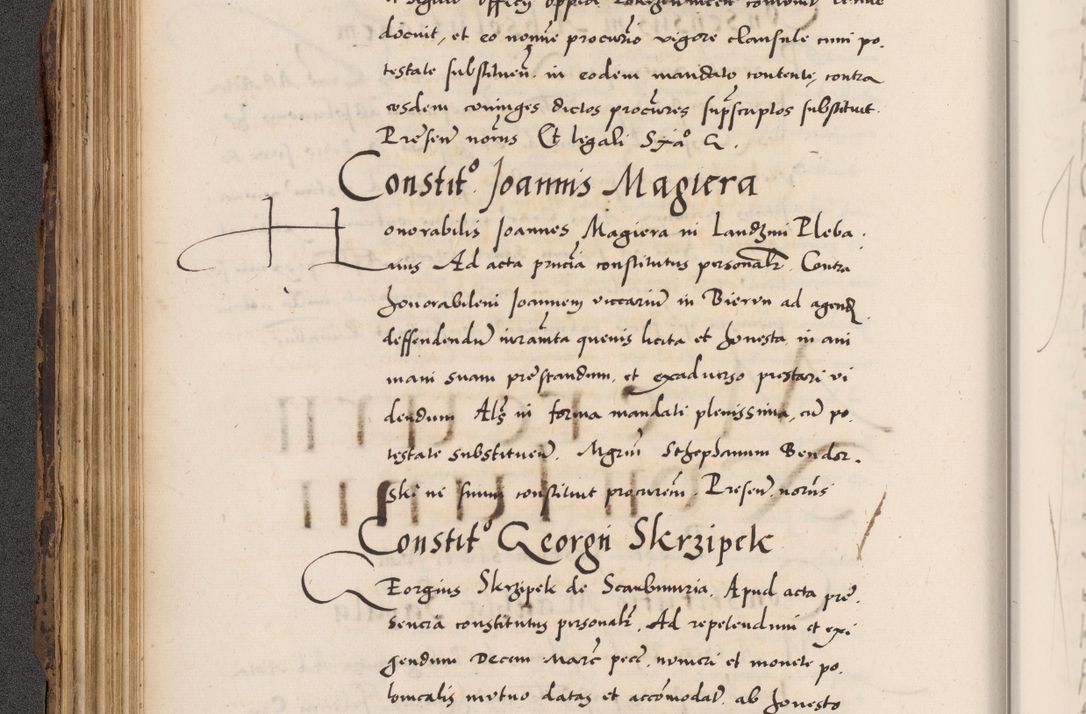 docuit, et eo nomine procurio vigore clausule cum po.
testate substituen. in eodem mandato contente, contra
eosdem coniuges dictos procures supscriptos substituit.
Presen noriis Et legali Sxia° G.
Constit° Joannis Magiera
Honorabilis Joannes Magiera in Landzmi Pleba.
nus Ad acta pncia constitutus personalr. Contra
honorabilem Joannem viccariu in Bierun ad agend
deffendendu iuramta quevis licita et honesta, in ani
mam suam prestandum, et exadverso prestari vi
dendum Als in forma mandati plenissima, cu po.
testate substituen. Mgrm Stephanum Bendor.
ski ne suum constituit procurem. Presen noriis
Constit° Georgii Skrzipek
GEorgius Skrzipek de Scarbimiria. Apud acta pre.
sencia constitutus personalr. Ad repetendum et exi
gendum Decem Marc pecc. numeri et monete po.
lonicalis mutuo datas et accomodat. ab honesto